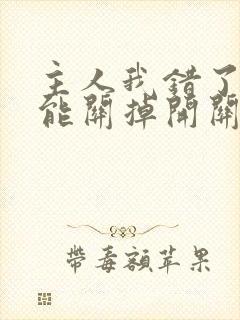 主人我錯了
能關掉開關
帶毒額苹果